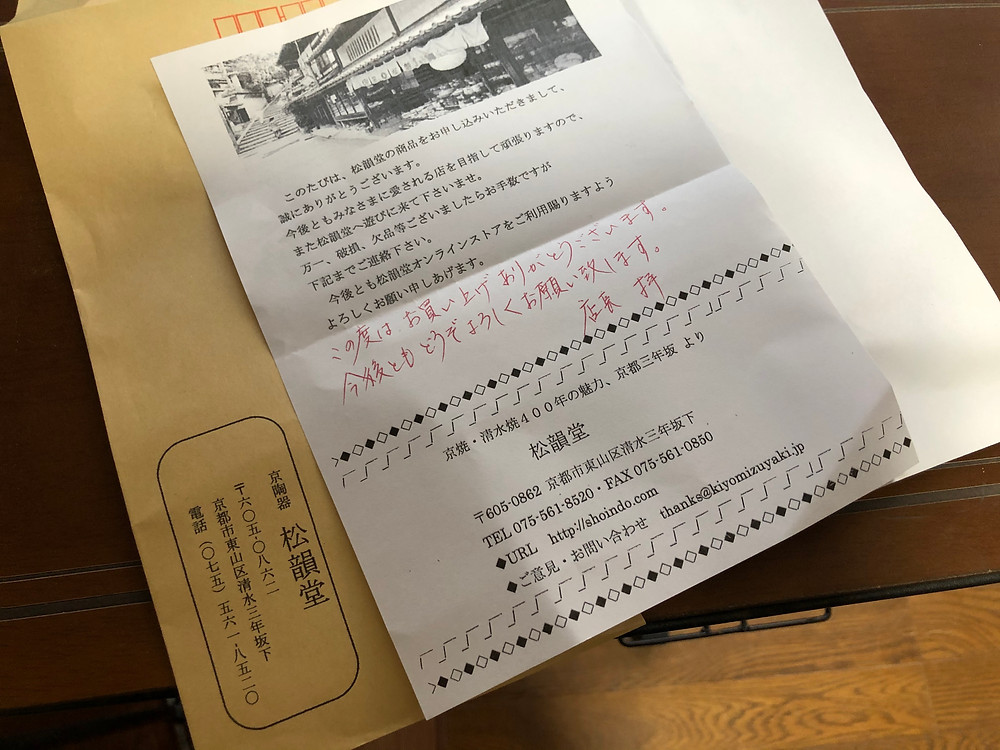 このたびは、松韻堂の商品をお申し込みいただきまして、
誠にありがとうございます。
今後ともみなさまに愛される店を目指して頑張りますので、
また松韻堂へ遊びに来て下さいませ。
万一、破損、欠品等ございましたらお手数ですが
下記までご連絡下さい。
今後とも松韻堂オンラインストアをご利用賜りますよう
よろしくお願い申しあげます。
この度は、お買い上げありがとうございます。
今後ともどうぞよろしくお願い致します。
店長 拝
京焼・清水焼400年の魅力、京都三年坂 より
松韻堂
〒605-0862 京都市東山区清水三年坂下
TEL 075-561-8520・FAX 075-561-0850
◆URL http://shoindo.com
◆ご意見・お問い合わせ thanks@kiyomizuyaki.jp
京陶器 松韻堂
〒六〇五-〇八六二
京都市東山区清水三年坂下
電話(〇七五)五六一-八五二〇